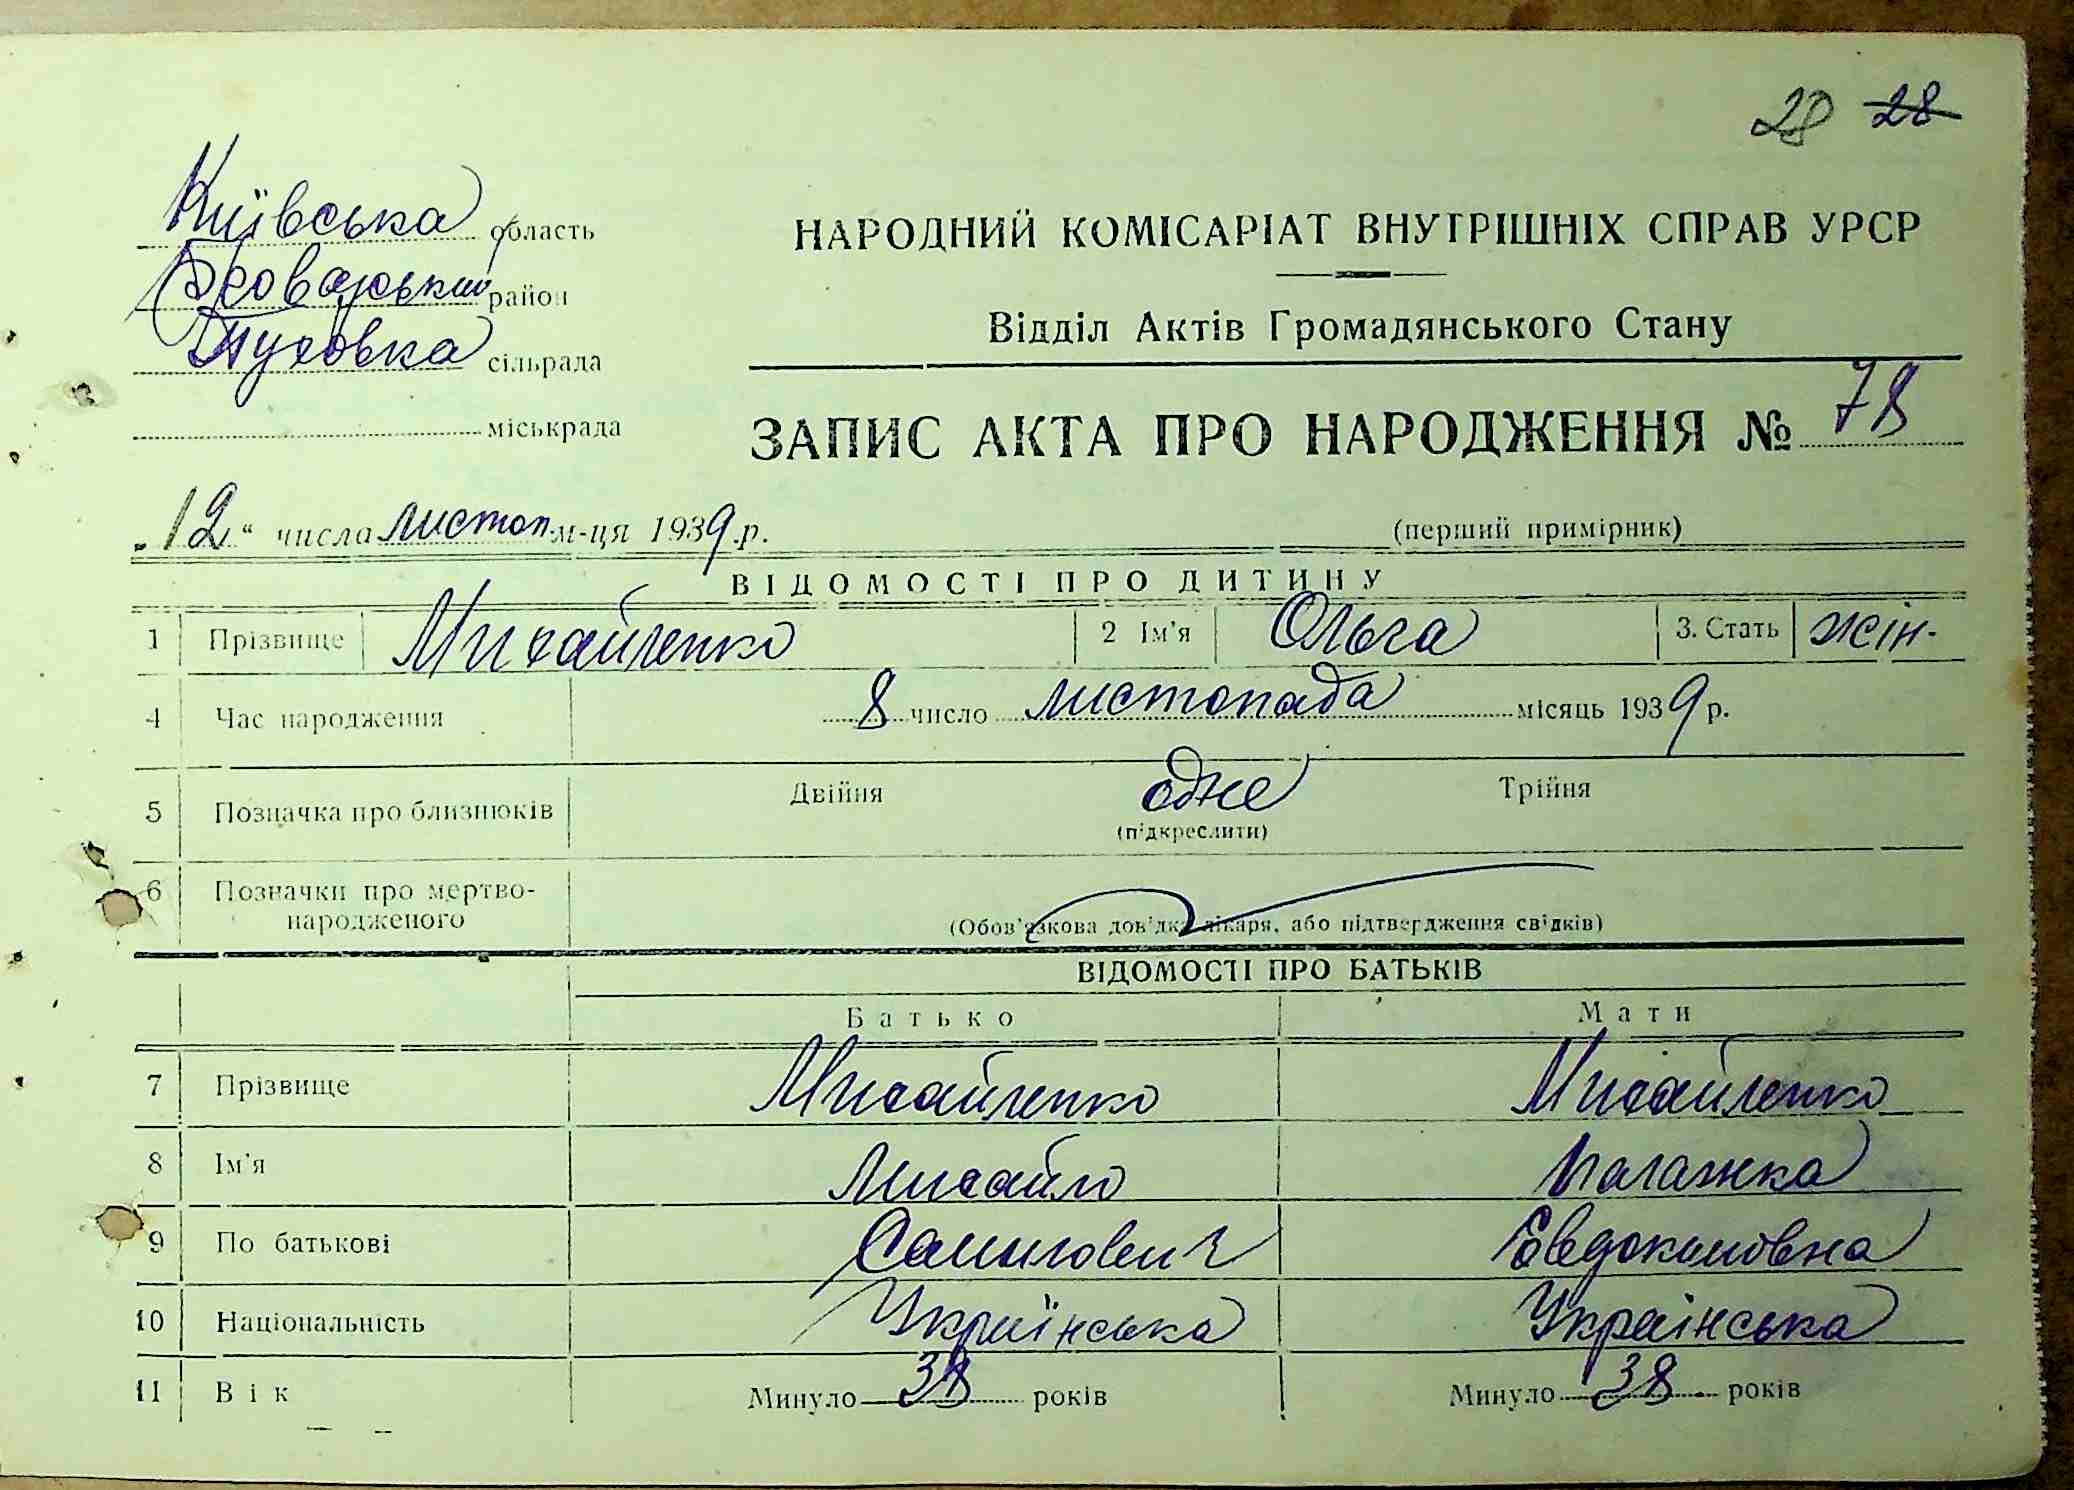 28 28
Київська область
Броварський район
Пуховка сільрада
міськрада
НАРОДНИЙ КОМІСАРІАТ ВНУТРІШНІХ СПРАВ УРСР
Відділ Актів Громадянського Стану
ЗАПИС АКТА ПРО НАРОДЖЕННЯ № 78
„12" числа листоп. м-ця 1939 р.
(перший примірник)
ВІДОМОСТІ ПРО ДИТИНУ
1 Прізвище Михайленко 2 Ім'я Ольга 3. Стать жін.
4 Час народження 8 число листопада місяць 1939 р.
5 Позначка про близнюків Двійня одне Трійня
(підкреслити)
6 Позначки про мертво-
народженого
(Обов'язкова дов'дка лікаря, або підтвердження свідків)
ВІДОМОСТІ ПРО БАТЬКІВ
Батько Мати
7 Прізвище Михайленко Михайленко
8 Ім'я Михайло Палажка
9 По батькові Самилович Євдокимовна
10 Національність Українська Українська
11 Вік Минуло 38 років Минуло 38 років